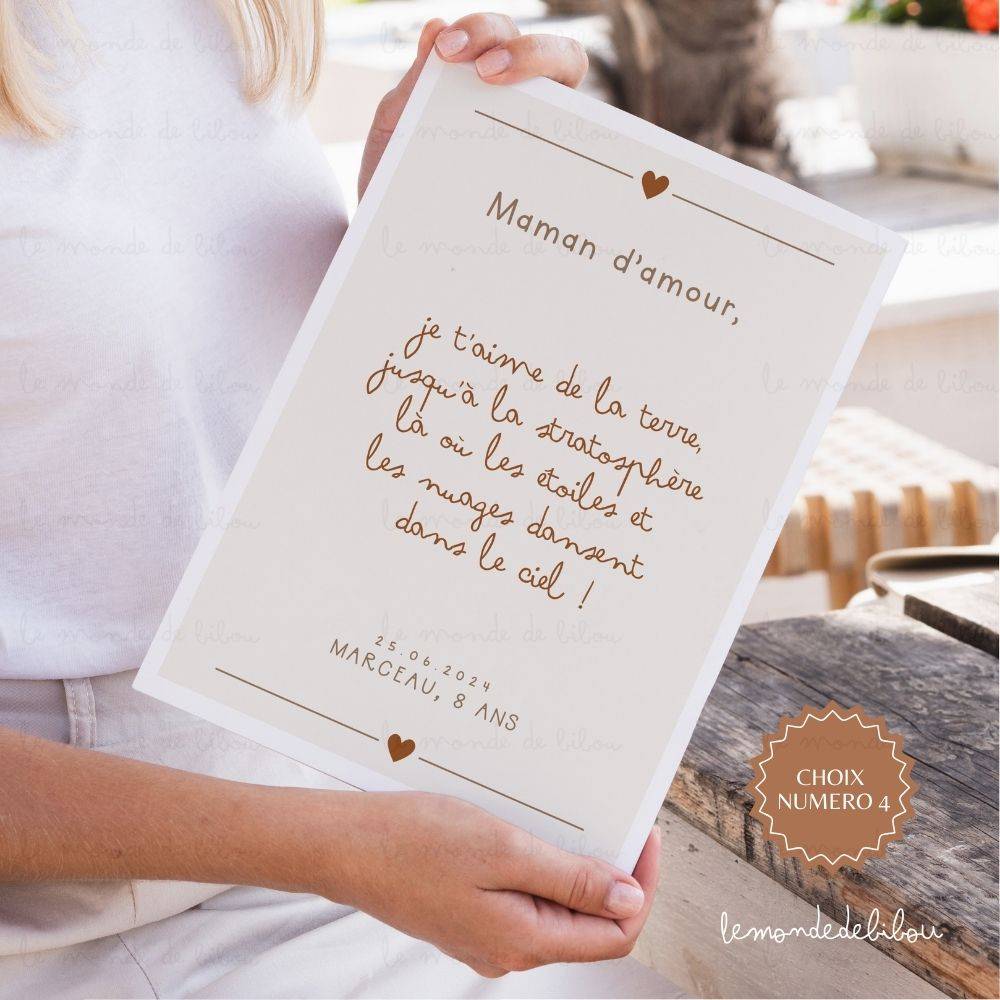 Maman d'amour,
je t'aime de la terre,
jusqu'à la stratosphère
là où les étoiles et
les nuages dansent
dans le ciel !
25.06.2024
MARCEAU, 8 ANS
CHOIX
NUMERO 4
lemondedebilou
le monde de bilou